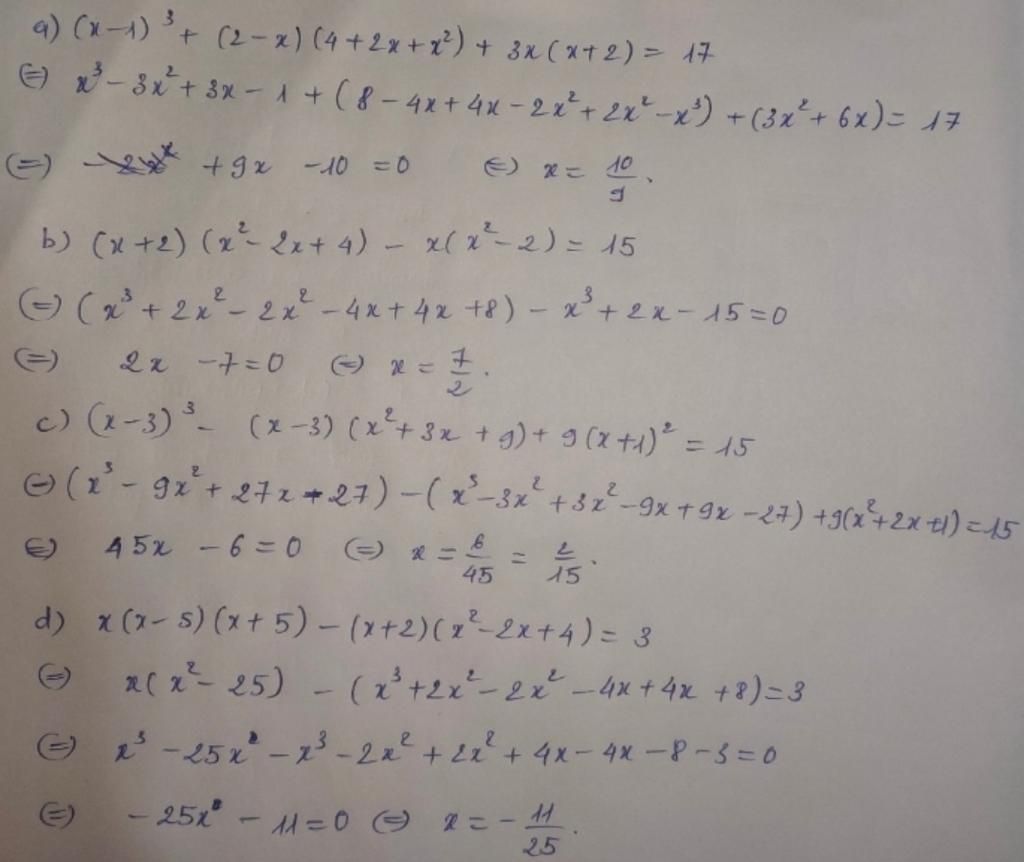 a) (x-1)³ + (2-x)(4+2x+x²) + 3x(x+2) = 17
(=) x³ - 3x² + 3x - 1 + (8 - 4x + 4x - 2x² + 2x² - x³) + (3x² + 6x) = 17
(=) + 9x - 10 = 0 (=) x = 10/9.
b) (x+2)(x² - 2x + 4) - x(x² - 2) = 15
(=) (x³ + 2x² - 2x² - 4x + 4x + 8) - x³ + 2x - 15 = 0
(=) 2x - 7 = 0 (=) x = 7/2.
c) (x-3)³ - (x-3)(x² + 3x + 9) + 9(x+1)² = 15
(=) (x³ - 9x² + 27x - 27) - (x³ - 3x² + 3x² - 9x + 9x - 27) + 9(x² + 2x + 1) = 15
(=) 45x - 6 = 0 (=) x = 6/45 = 2/15.
d) x(x-5)(x+5) - (x+2)(x² - 2x + 4) = 3
(=) x(x² - 25) - (x³ + 2x² - 2x² - 4x + 4x + 8) = 3
(=) x³ - 25x - x³ - 2x² + 2x² + 4x - 4x - 8 - 3 = 0
(=) - 25x - 11 = 0 (=) x = - 11/25.